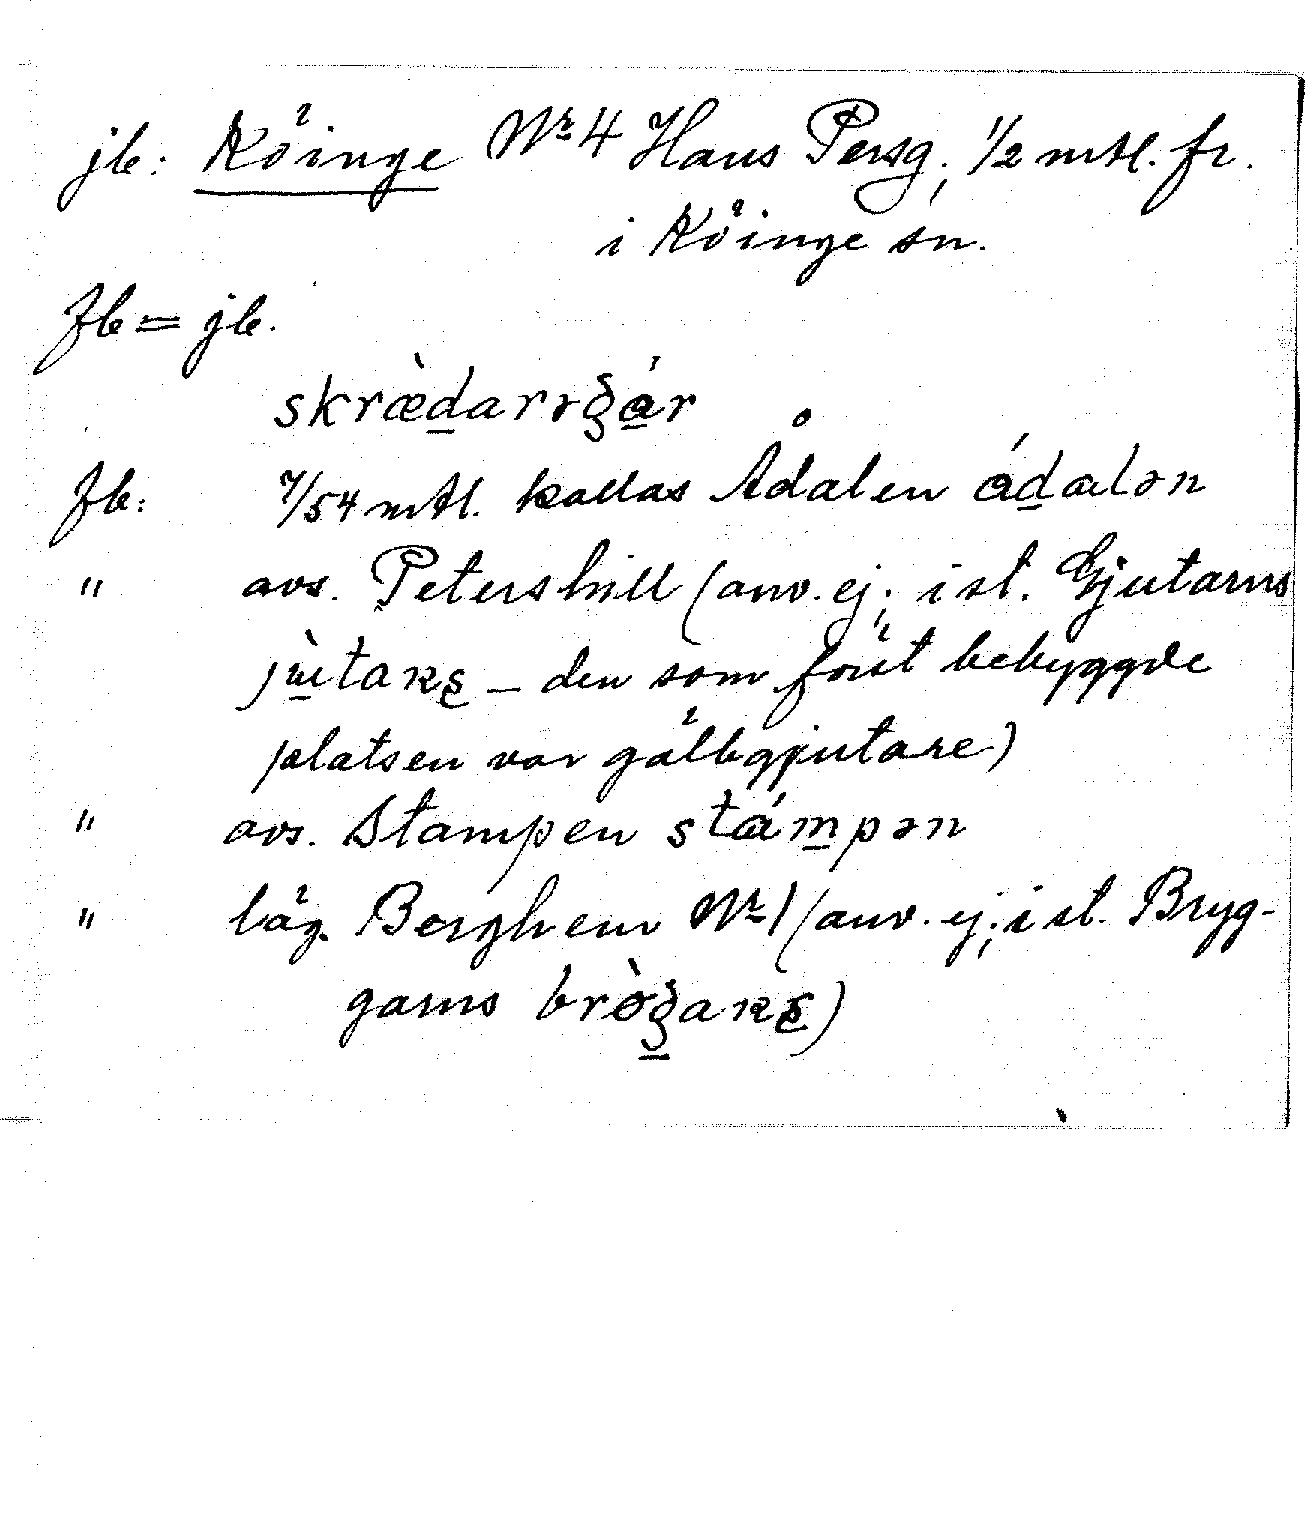 jb: Köinge No 4 Hans Persg; 1/2 mtl. fr.
i Köinge sn.
Jb = jb.
skræ̀darəgár
Jb: 7/54 mtl. kallas Ådalen ádalən
" avs. Petershill (anv. ej; i st. Gjutarns
jùtaʀs – den som först bebyggde
platsen var gälbgjutare)
" avs. Stampen stámpən
" läg. Borghem No 1 (anv. ej; i st. Bryg-
garns brògaʀs)